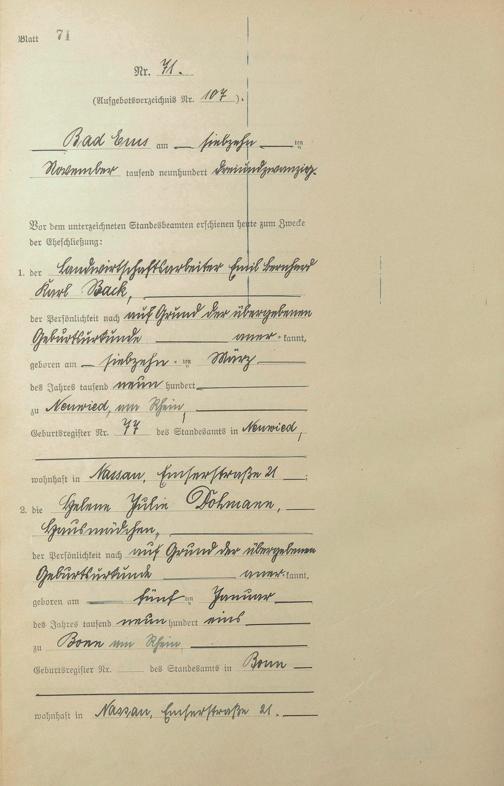 Blatt 71
Nr. 71.
(Aufgebotsverzeichnis Nr. 107).
Bad Ems am siebzehn ten
November tausend neunhundert dreiundzwanzig.
Vor dem unterzeichneten Standesbeamten erschienen heute zum Zwecke
der Eheschließung:
1. der Landwirtschaftsarbeiter Emil Bernhard
Karl Back,
der Persönlichkeit nach auf Grund der übergebenen
Geburtsurkunde aner kannt,
geboren am siebzehn ten März
des Jahres tausend neun hundert
zu Neuwied, am Rhein,
Geburtsregister Nr. 77 des Standesamts in Neuwied,
wohnhaft in Nassau, Emserstraße 21 ;
2. die Helene Julie Dohmann,
Hausmädchen,
der Persönlichkeit nach auf Grund der übergebenen
Geburtsurkunde aner kannt,
geboren am fünf ten Januar
des Jahres tausend neun hundert eins
zu Bonn am Rhein,
Geburtsregister Nr. des Standesamts in Bonn
wohnhaft in Nassau, Emserstraße 21.